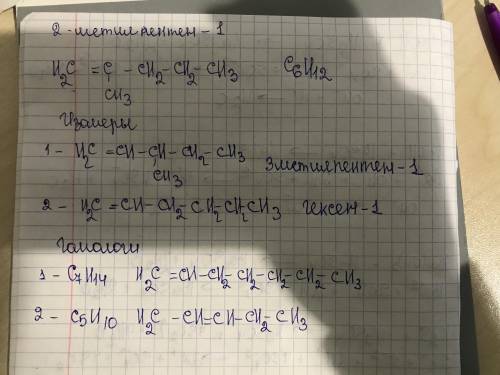 2-метил пентен-1
H2C = C - CH2 - CH2 - CH3 C6H12
CH3
Изомеры
1 - H2C = CH - CH - CH2 - CH3
CH3 3метилпентен-1
2 - H2C = CH - CH2 - CH2 - CH2 - CH3 гексен-1
Гомологи
1 - C7H14 H2C = CH - CH2 - CH2 - CH2 - CH2 - CH3
2 - C5H10 H2C - CH = CH - CH2 - CH3